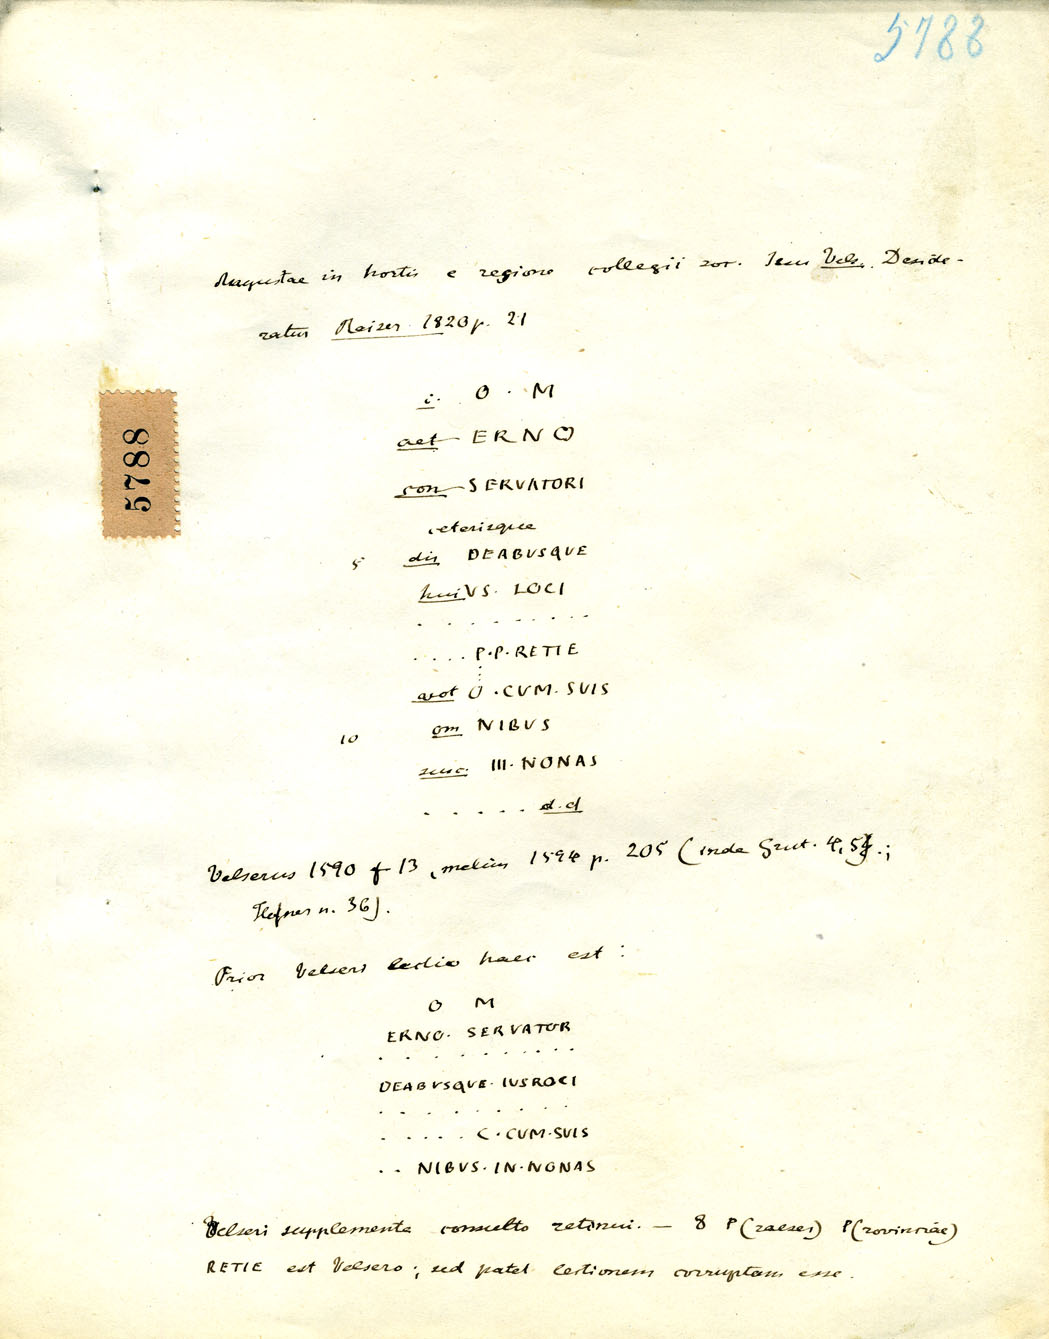 5788
Augustae in hortis e regione collegii soc. Iesu Vels. Deside-
ratur Raiser 1820 p. 21
5788
i. O · M
aet ERNO
con SERVATORI
ceterisque
5 dis DEABUSQUE
hui VS · LOCI
. . . . . . . . .
. . . . P · P · RETIE
avot O · CUM · SUIS
10 om NIBUS
III · NONAS
. . . . . d.d
Velserus 1590 f 13, melius 1594 p. 205 (inde Grut. 4, 5;
Hefner n. 36).
Prior Velseri lectio haec est :
O M
ERNO · SERVATOR
. . . . . . . . . .
DEABUSQUE · IUSROCI
. . . . . . . . . .
. . . . . C · CUM · SUIS
. . NIBUS · IN · NONAS
Velseri supplementa consulto retinui. — 8 P(raeses) P(rovinciae)
RETIE est Velsero; sed patet lectionem corruptam esse.